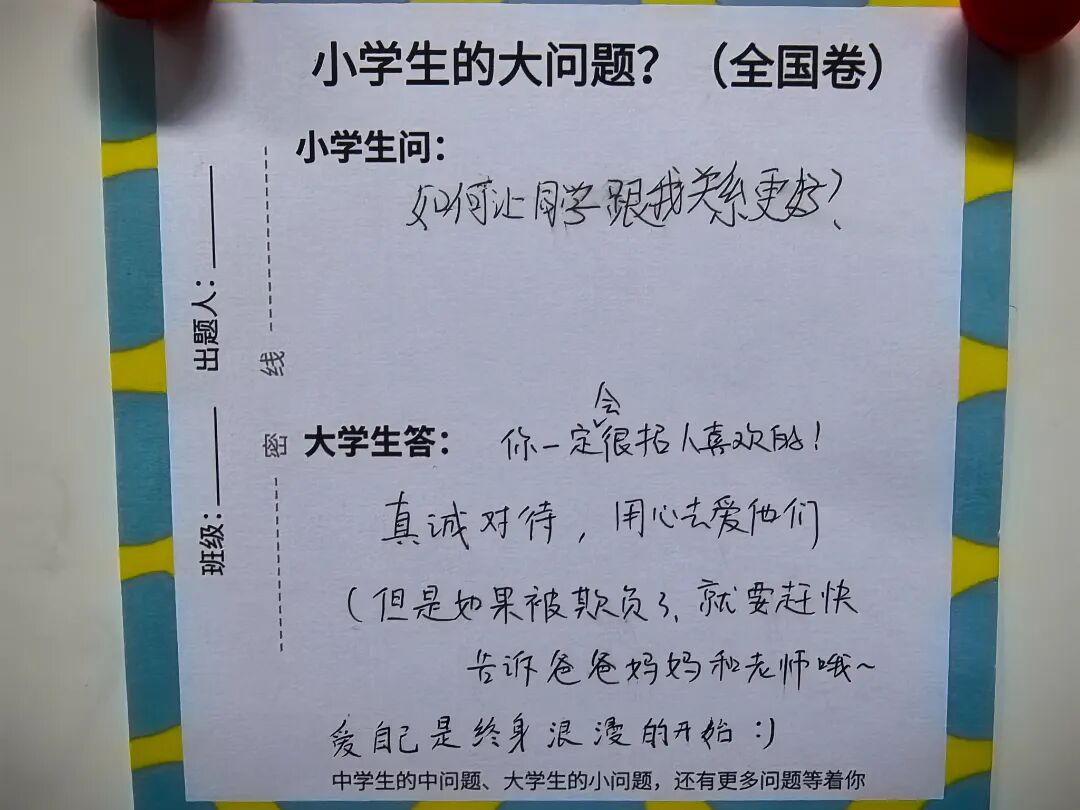 小学生的大问题？（全国卷）
小学生问：
如何让同学跟我关系更好？
出题人：
线
密
班级：
大学生答：
你一定会很招人喜欢的！
真诚对待，用心去爱他们
（但是如果被欺负了、就要赶快
告诉爸爸妈妈和老师哦～
爱自己是终身浪漫的开始 :)
中学生的中问题、大学生的小问题，还有更多问题等着你